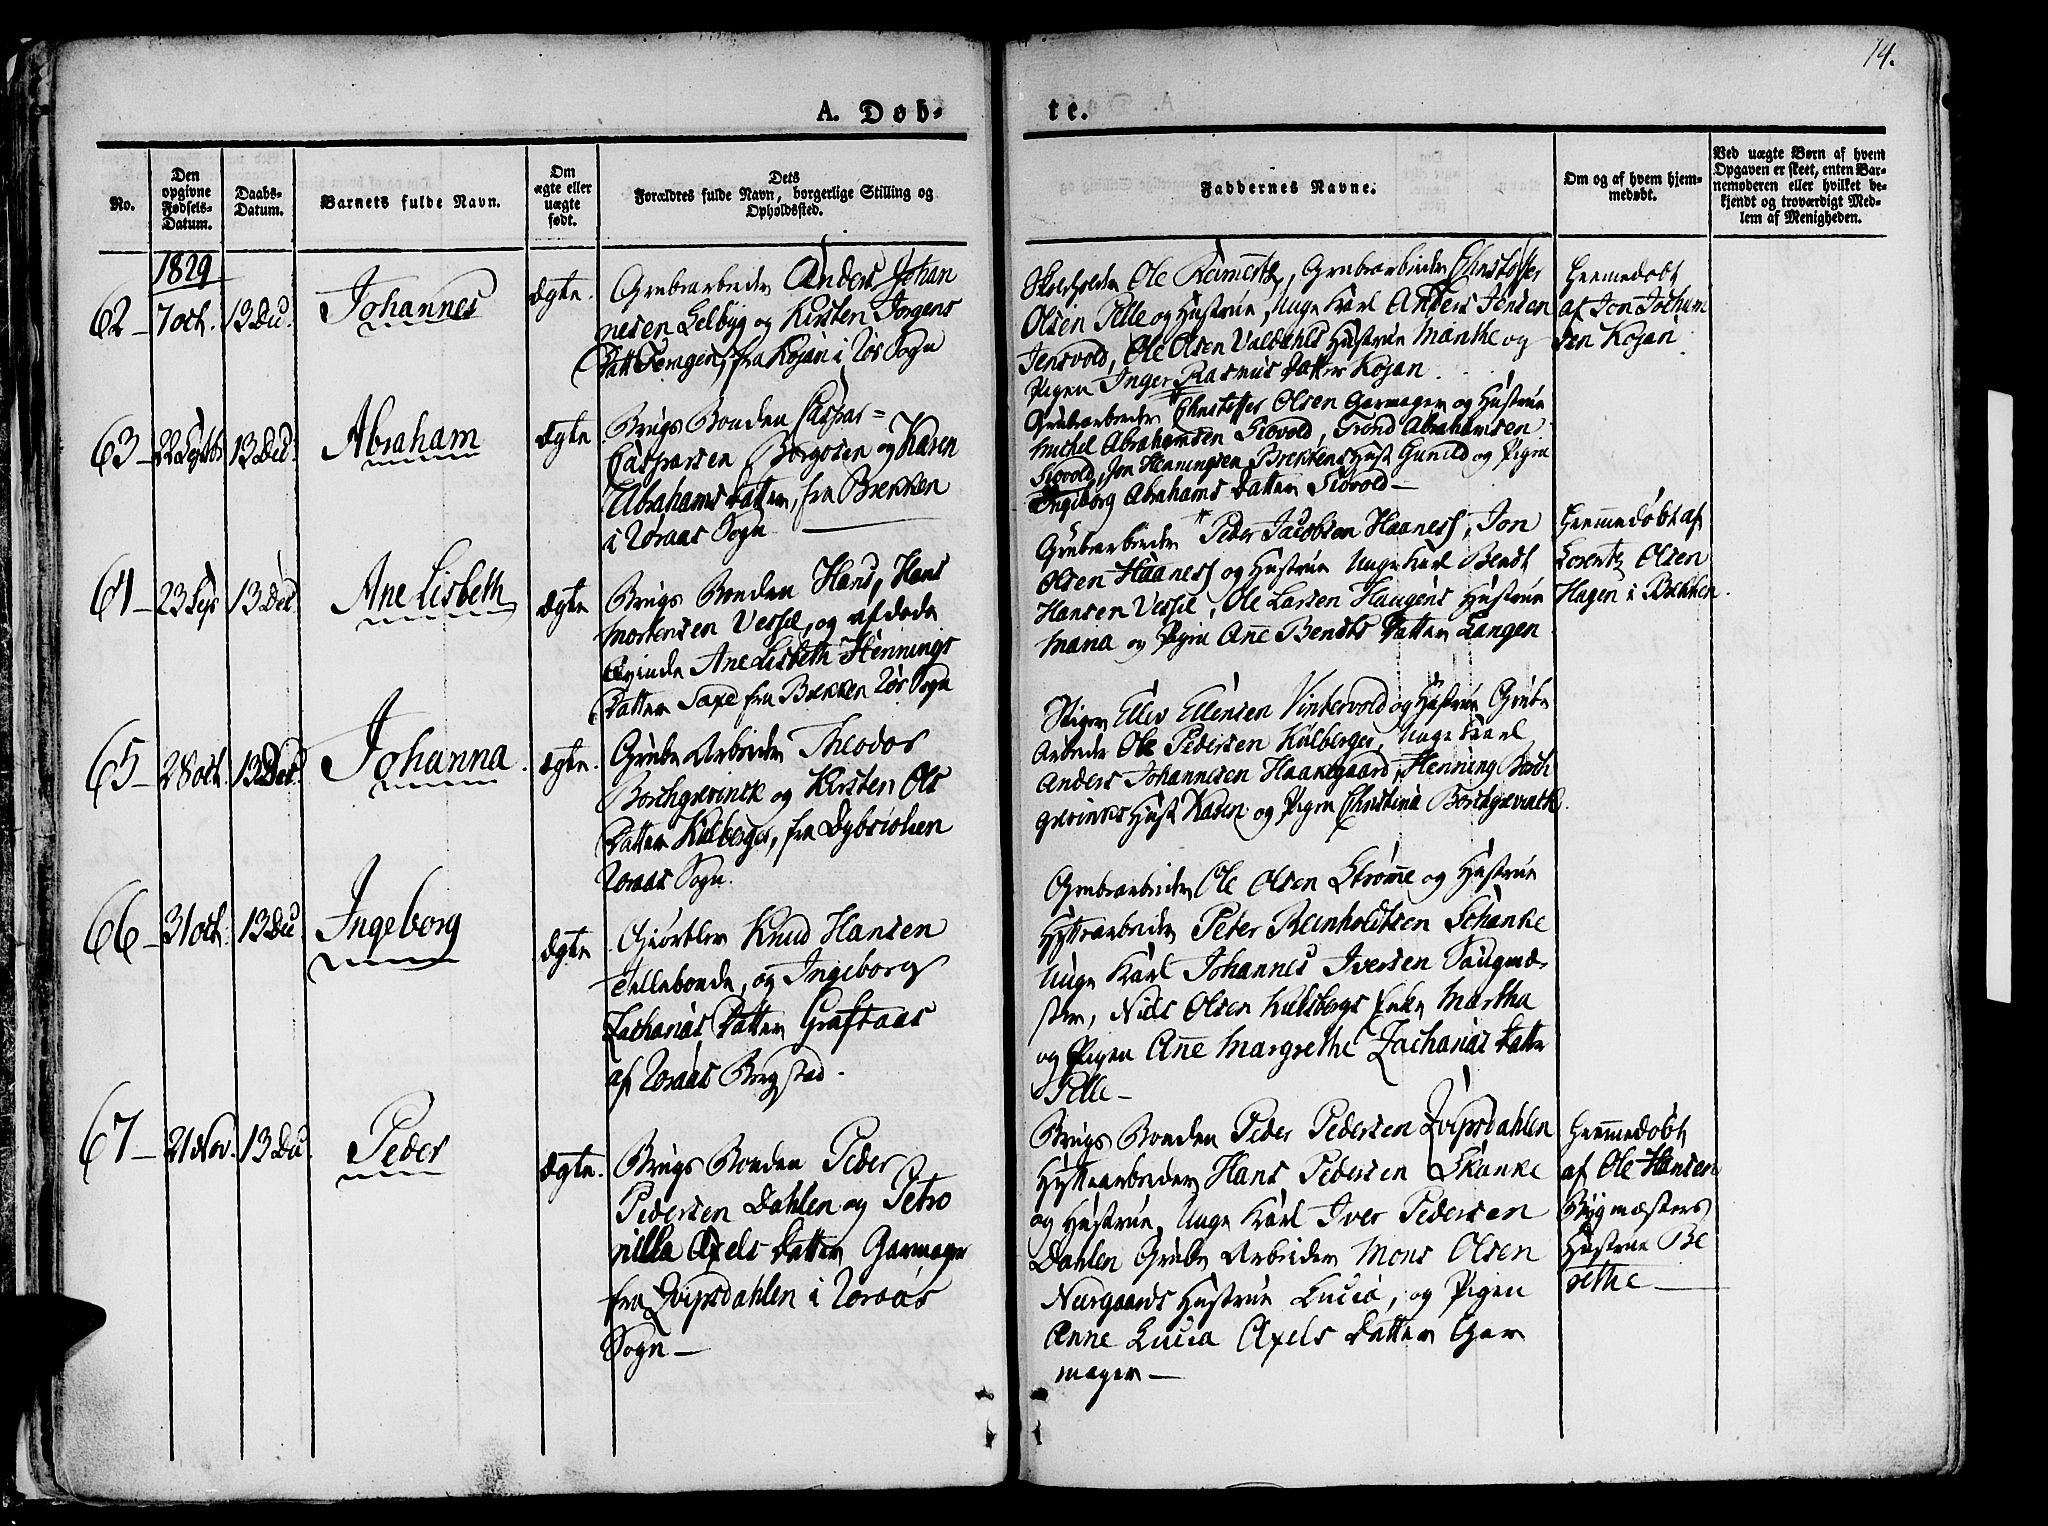 14.
A. Døb-
te.
No.
Den
opgivne
Fødsels-
Datum.
Daabs-
Datum.
Barnets fulde Navn.
Om
ægte eller
uægte
født.
Dets
Forældres fulde Navn, borgerlige Stilling og
Opholdssted.
Faddernes Navne.
Om og af hvem hjem-
medøbt.
Ved uægte Børn af hvem
Opgaven er skeet, enten Bar-
nemoderen eller hvilket be-
kjendt og troværdigt Med-
lem af Menigheden.
1829
62 - 7 oct. 13 Dec. Johannes ægte.
Grubearbeider Anders Johan
nesen Selbyg og Kirsten Jørgens
Datter fra Kojan i Rørs Sogn
Ole Olsen Grubearbeider Christoffer
Olsen Pelle og Hustrue, Unge Karl Anders Jensen
Jensvold, Ole Olsen Valdahls Hustrue Marithe og
Pigen Inger Rasmus Datter Kojan.
Hiemmedøbt
af Jon Jochum
sen Kojan
63 - 22 Septbr 13 Dec. Abraham ægte
Brugs Bonden Caspar
Caspersen Borgosen og Karen
Abrahams Datter, fra Brekken
i Røraas Sogn
Grubearbeider Christoffer Olsen Garmager og Hustrue
Michel Abrahamsen Siovold, Trond Abrahamsen
Siovold, Jon Henningsen Brekkens Hust Gunild og Pigen
Ingeborg Abrahams Datter Siovold -
64 - 23 Sep 13 Dec Ane Lisbeth ægte
Brugs Bonden Hans, Hans
Mortensen Vessel, og afdøde
Qvinde Ane Lisbeth Hennings
Datter Saxe fra Brekken Rørs Sogn
Grubearbeider Peder Jacobsen Haaness, Jon
Olsen Haaness og Hustrue Unge Karl Bendt
Hansen Vessel, Ole Larsen Haugens Hustrue
Maria og Pigen Ane Bendts Datter Langen
Hiemmedøbt af
Lorentz Olsen
Hagen i Brekken.
65 - 28 oct. 13 Dec. Johanna. ægte.
Grube Arbeider Theodor
Borchgrevinck og Kirsten Ols
Datter Kulberget, fra Dybsiøhen
Røraas Sogn.
Stiger Ellev Ellensen Vintervold og Hustrue Grube
Arbeider Ole Pedersen Kulberget, Unge Karl
Anders Johannesen Haanegaard, Henning Borch
grevincks Hust Karen og Pigen Christina Borchgrevinck.
66 - 31 oct. 13 Dec Ingeborg ægte
Knud Hansen
Tellebonde, og Ingeborg
Zacharias Datter Graftaas
af Røraas Bergstad.
Grubearbeider Ole Olsen Strømme og Hustrue
Hyttearbeider Peter Reinholdtsen Schanke
Unge Karl Johannes Iversen Saugmæ-
ster, Niels Olsen Kulsbergs Enke Martha
og Pigen Ane Margrethe Zacharias Datte
Pelle -
67 - 21 Nov. 13 Dec. Peder ægte.
Brugs Bonden Peder
Pedersen Dahlen og Petro
nilla Axels Datter Garmager
fra Qvipsdahlen i Røraas
Sogn -
Brugs Bonden Peder Pedersen Qvipsdahlen
Hyttearbeider Hans Pedersen Skanke
og Hustrue, Unge Karl Iver Pedersen
Dahlen Grube Arbeider Mons Olsen
Nurgaards Hustrue Lucia, og Pigen
Anne Lucia Axels Datter Gar
mager -
Hiemmedøbt
af Ole Hansen
Bygmæsters
Hustrue Be
rethe -